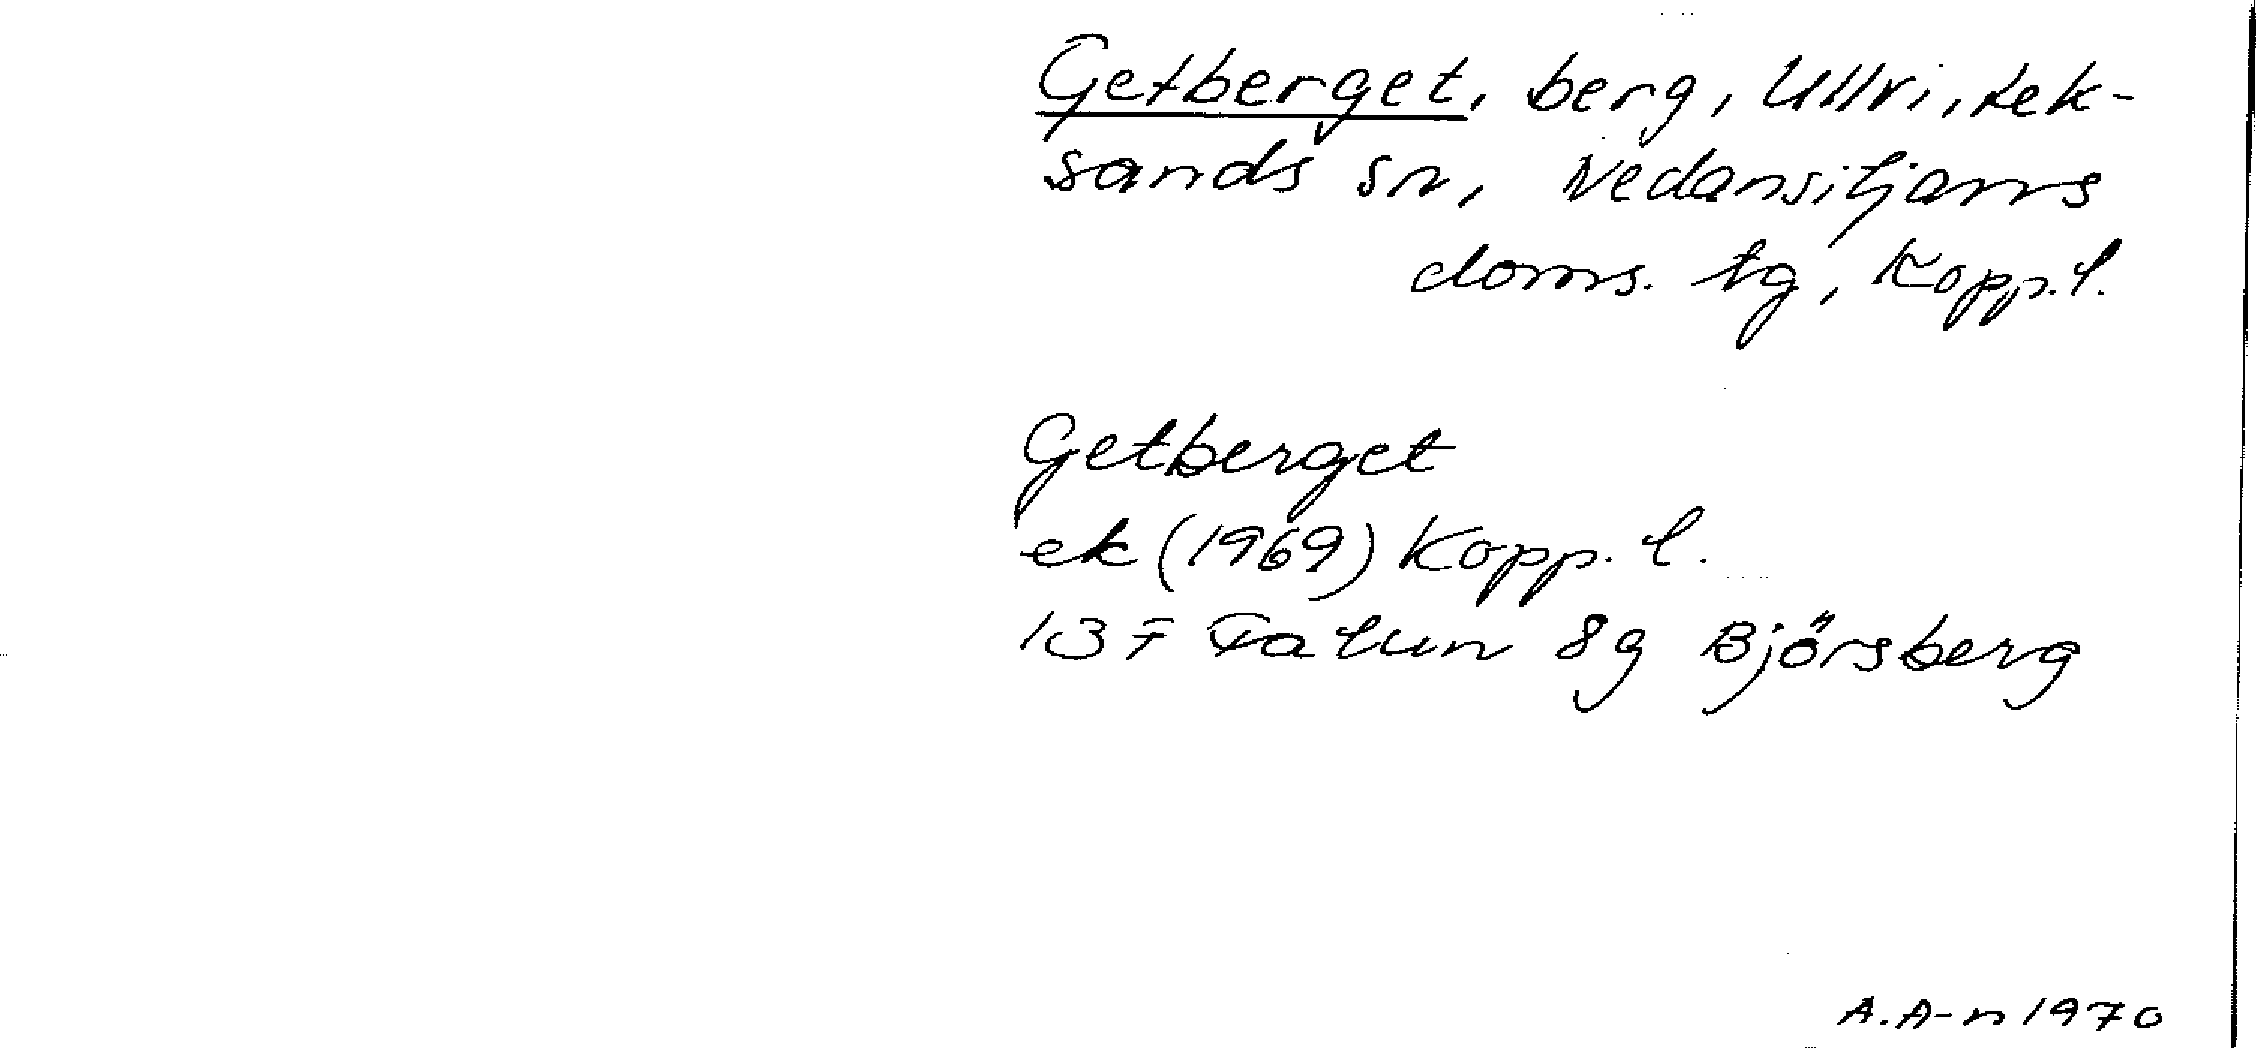 Getberget, berg, Ullvi, Lek-
sands sn, Nedansiljans
doms. tg, Kopp. l.
Getberget
ek (1969) Kopp. l.
13 F Falun 8g Björsberg
A.A-n 1970